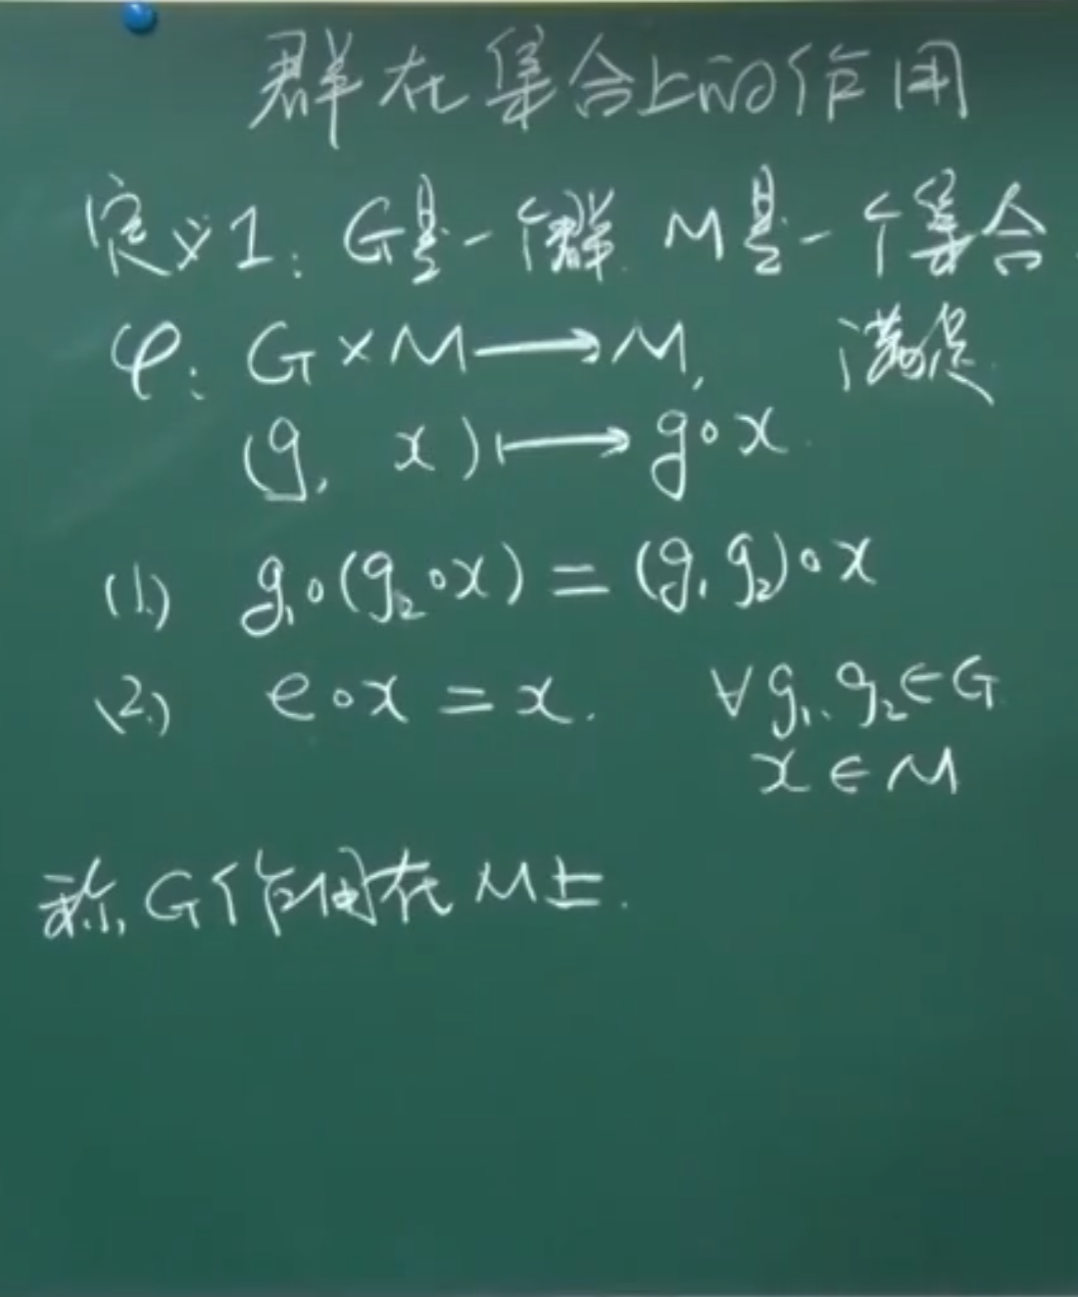 群在集合上的作用
定义1: G是一个群. M是一个集合.
φ: G×M⟶M, 满足
(g, x)⟼g∘x.
(1) g₁∘(g₂∘x)=(g₁g₂)∘x
(2) e∘x=x. ∀g₁, g₂∈G
x∈M
称G作用在M上.